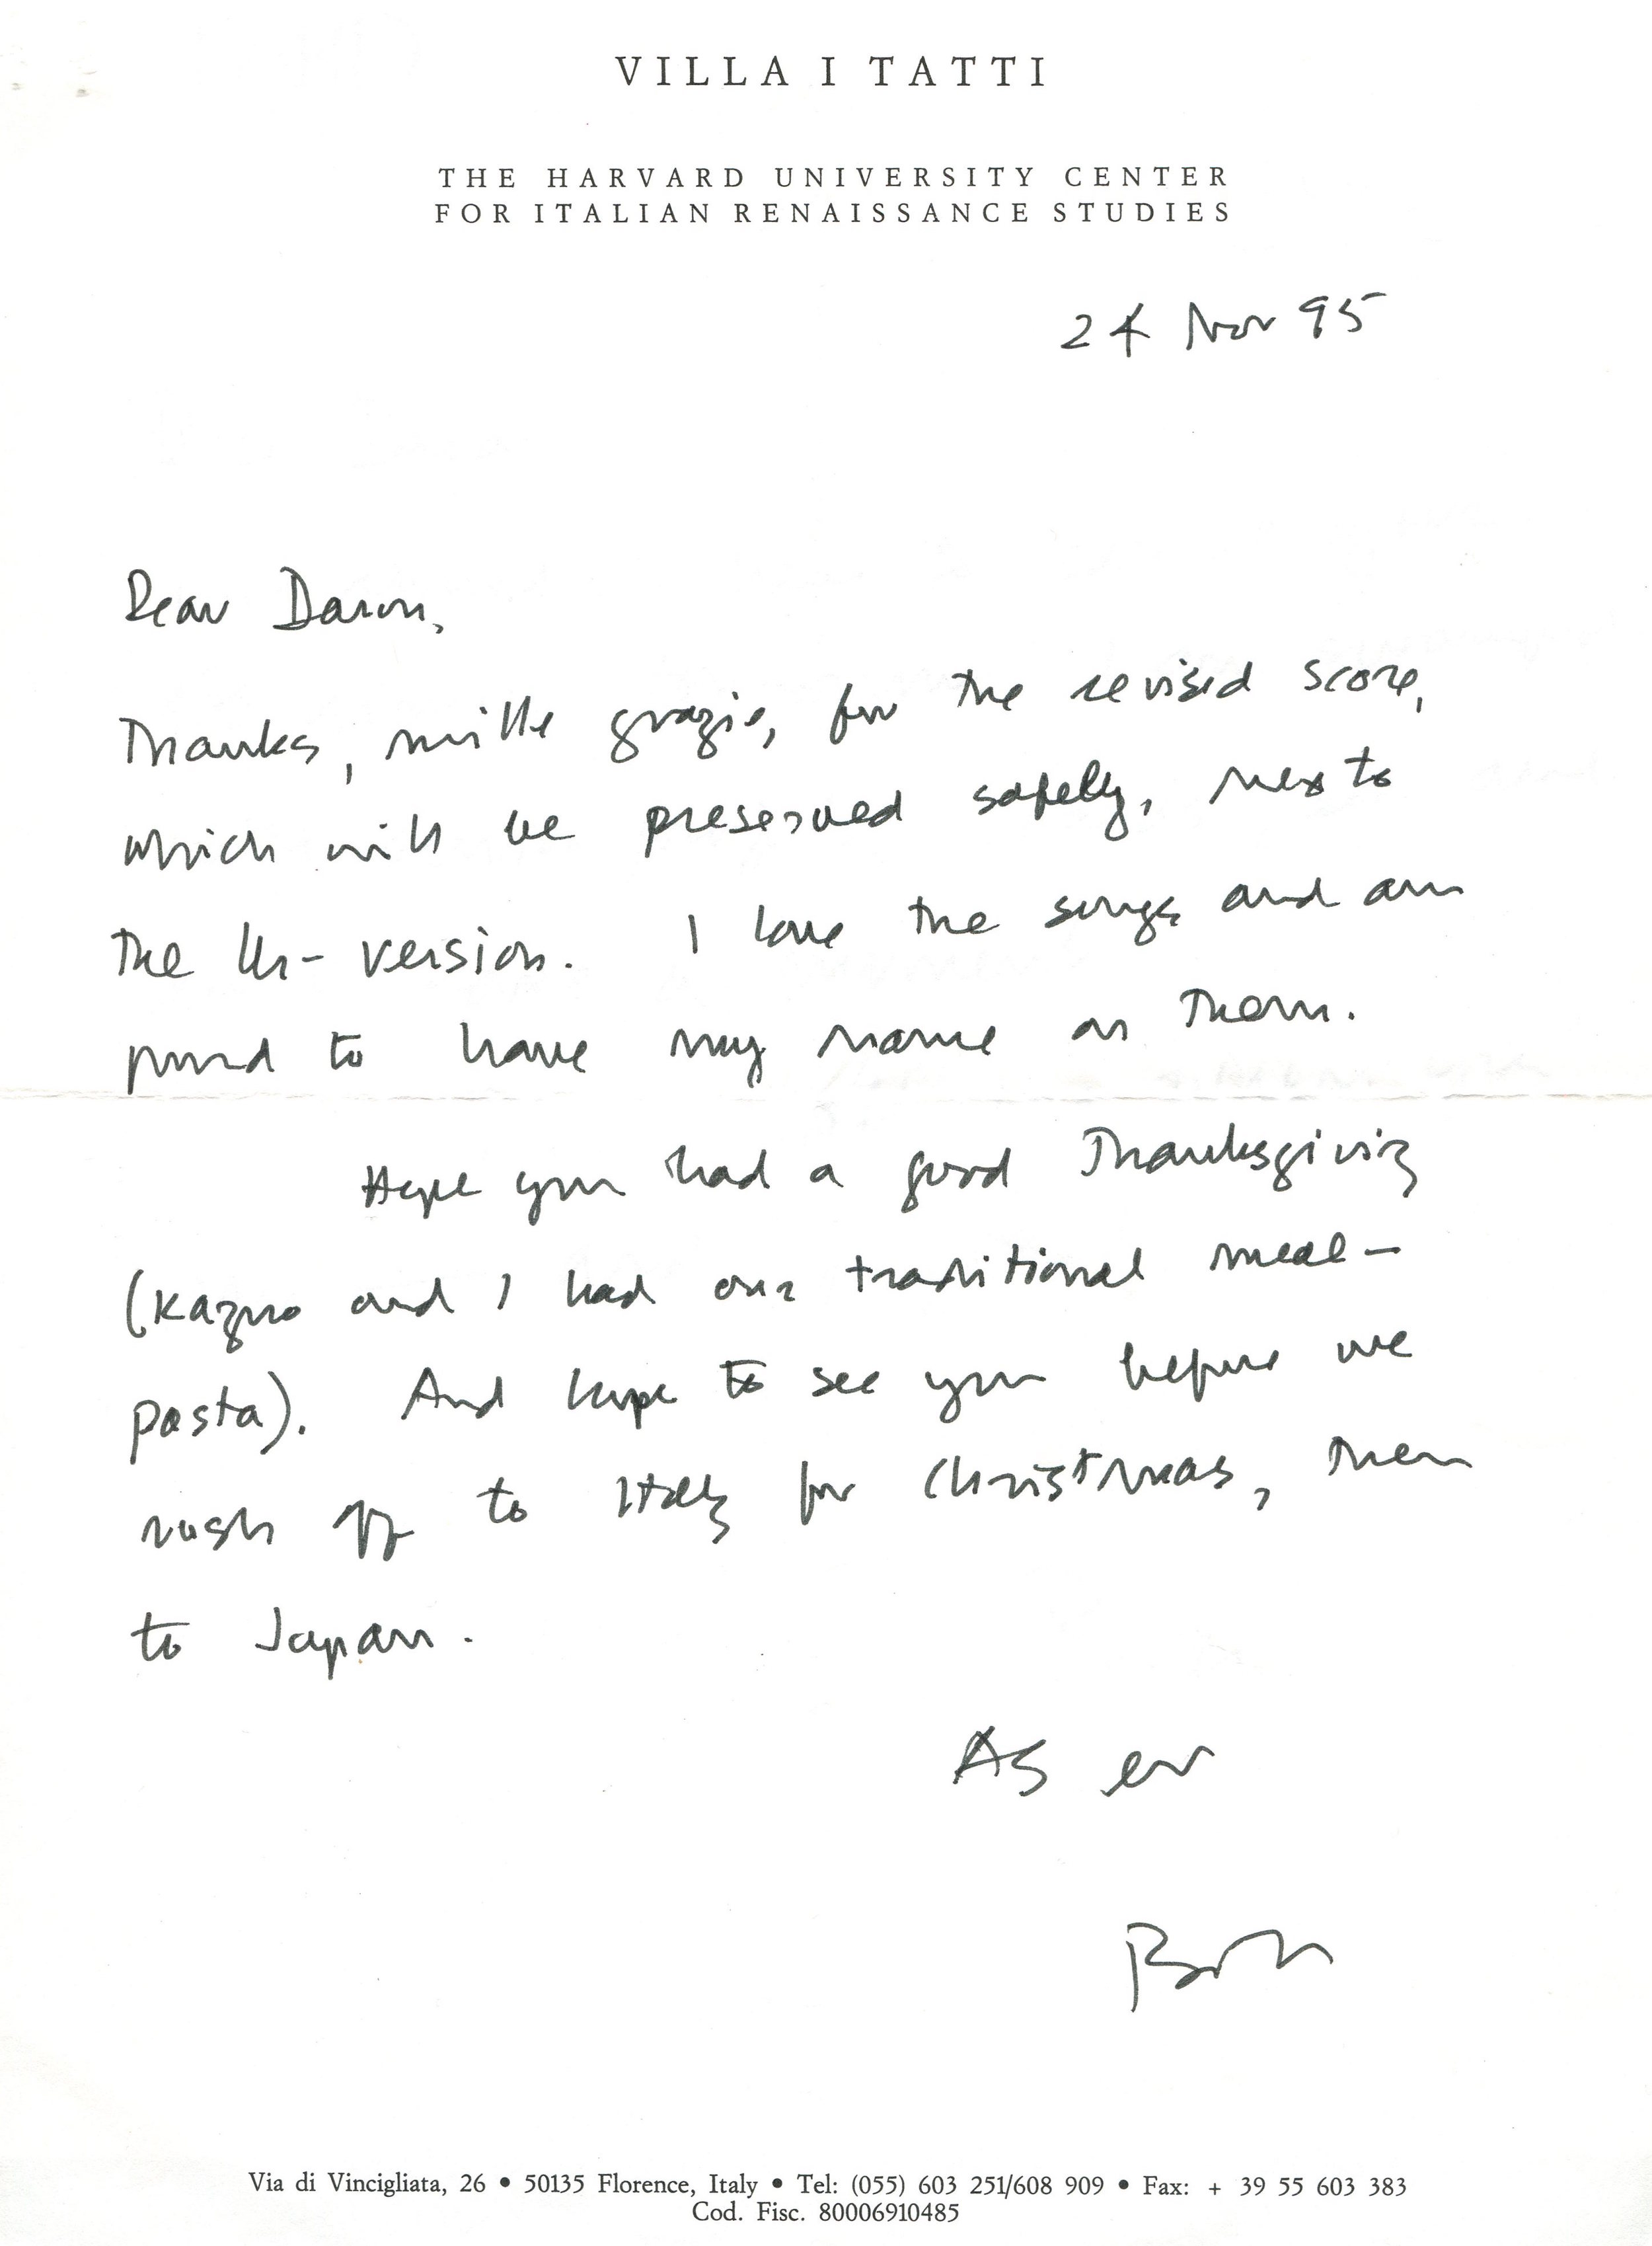 VILLA I TATTI
THE HARVARD UNIVERSITY CENTER
FOR ITALIAN RENAISSANCE STUDIES
24 Nov 95
Dear Daron,
Thanks, mille grazie, for the revised score,
which will be preserved safely, next to
the Ur-version. I love the songs and am
proud to have my name on them.
Hope you had a good Thanksgiving
(Kazuo and I had our traditional meal—
pasta). And hope to see you before we
rush off to Italy for Christmas, then
to Japan.
As ever
Via di Vincigliata, 26 • 50135 Florence, Italy • Tel: (055) 603 251/608 909 • Fax: + 39 55 603 383
Cod. Fisc. 80006910485